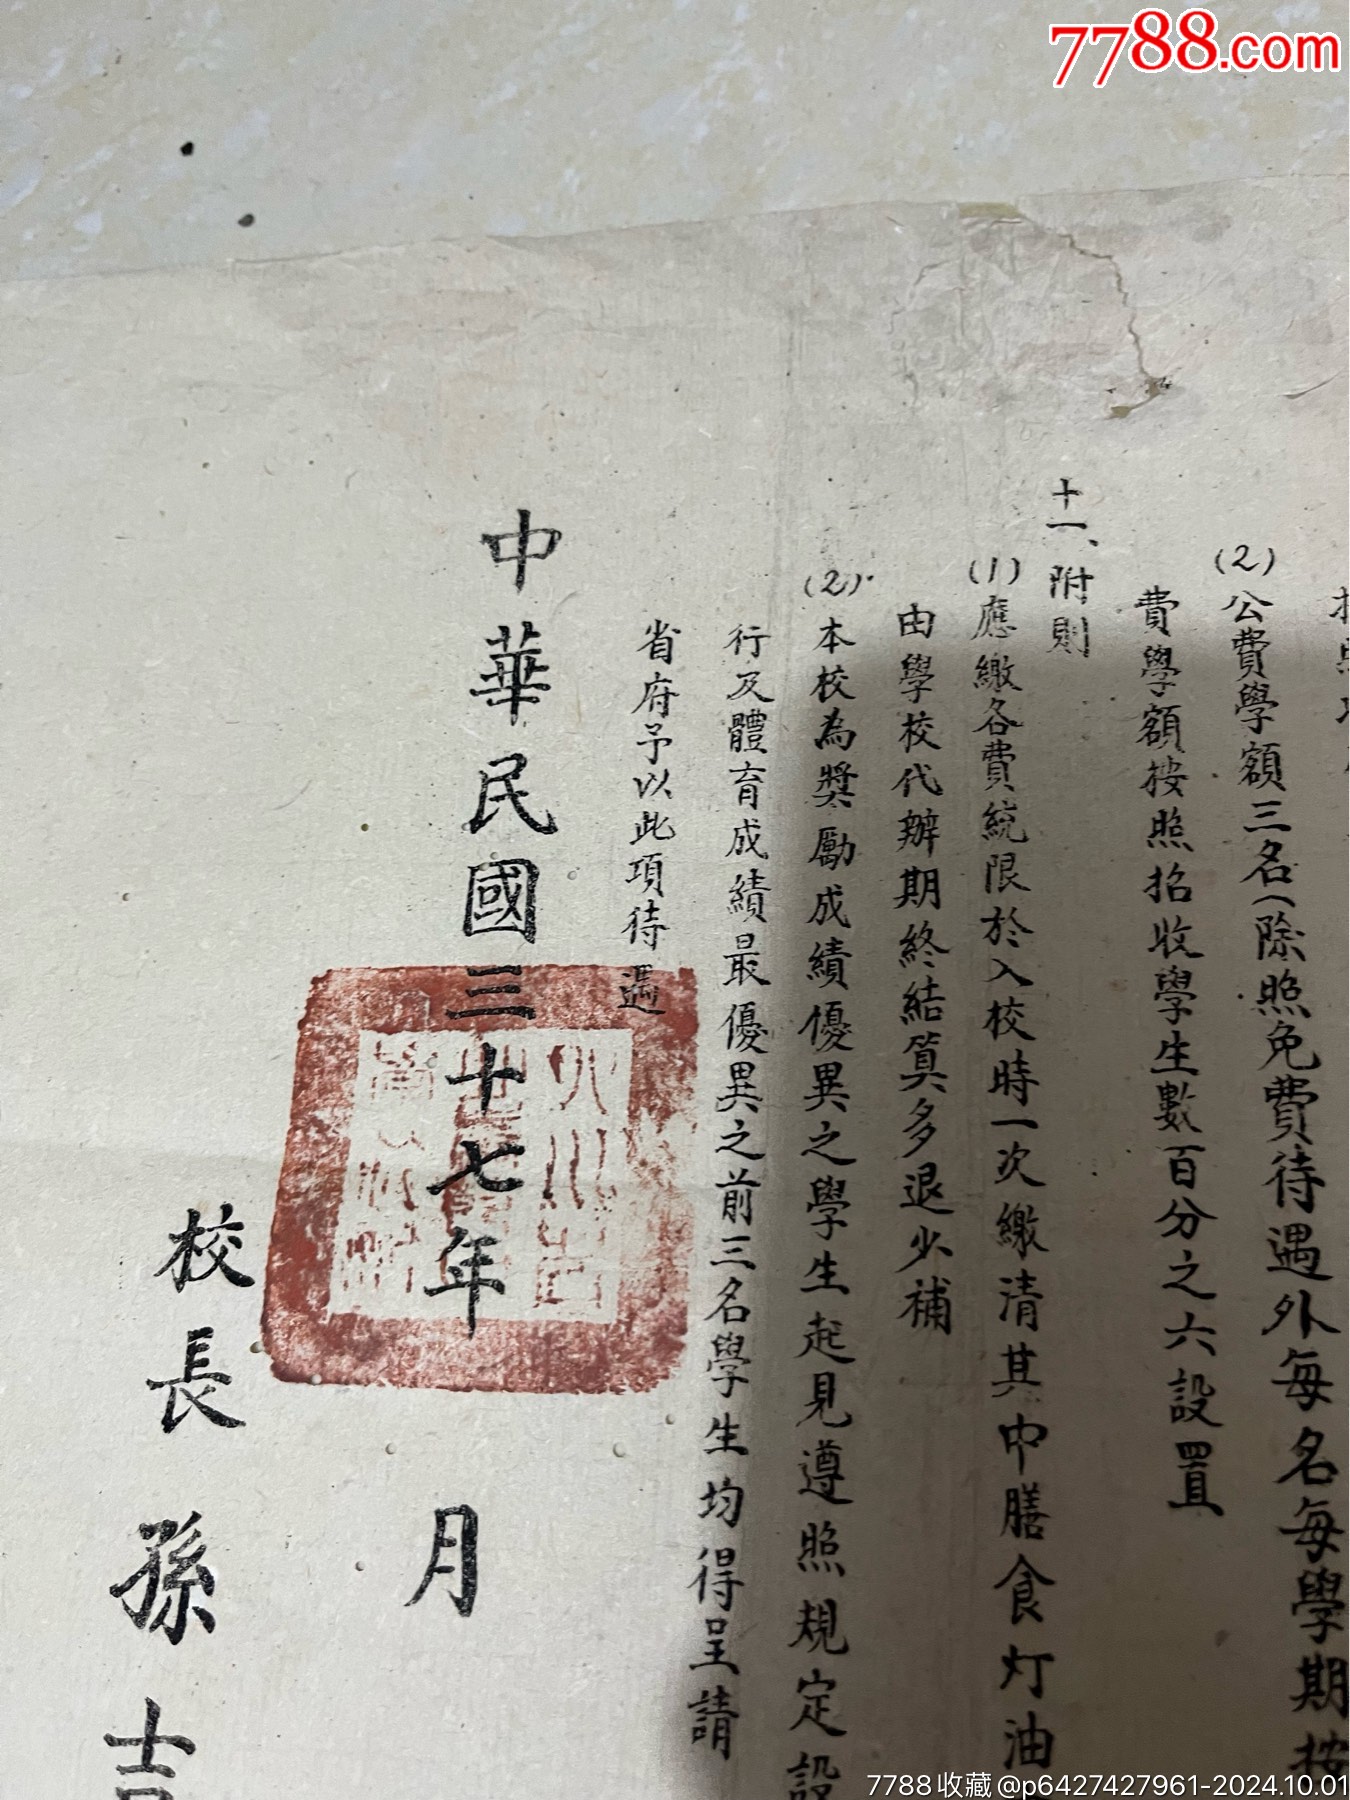 7788.com
(2)公費學額三名(除照免費待遇外每名每學期按
費學額按照招收學生數百分之六設置
十一、附則
(1)應繳各費統限於入校時一次繳清其中膳食灯油
由學校代辦期終結算多退少補
(2)本校為獎勵成績優異之學生起見遵照規定設
行及體育成績最優異之前三名學生均得呈請
省府予以此項待遇
中華民國三十七年 月
校長 孫
7788收藏@p6427427961-2024.10.01